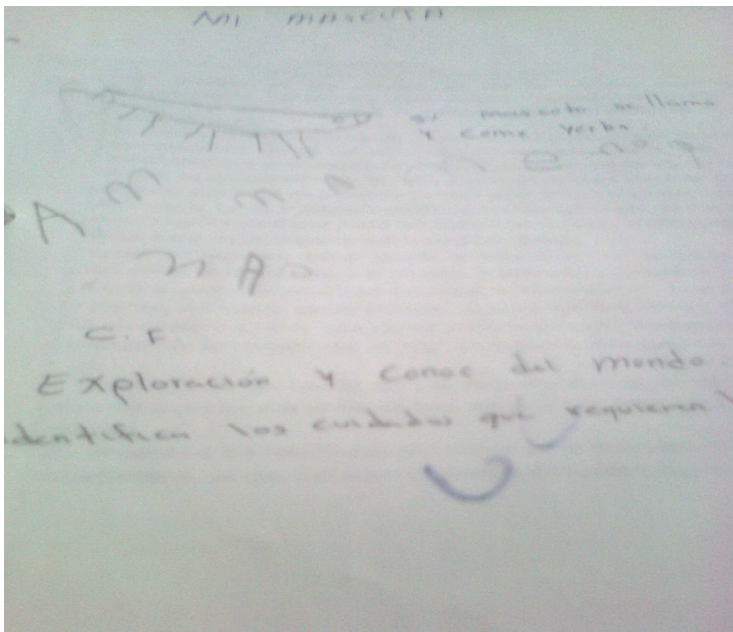 Mi mascota
mi mascota se llama
y come yerba
A m m n m e n o q
m A o
C. F.
Exploración y conoc del mundo.
identifican los cuidados que requieren